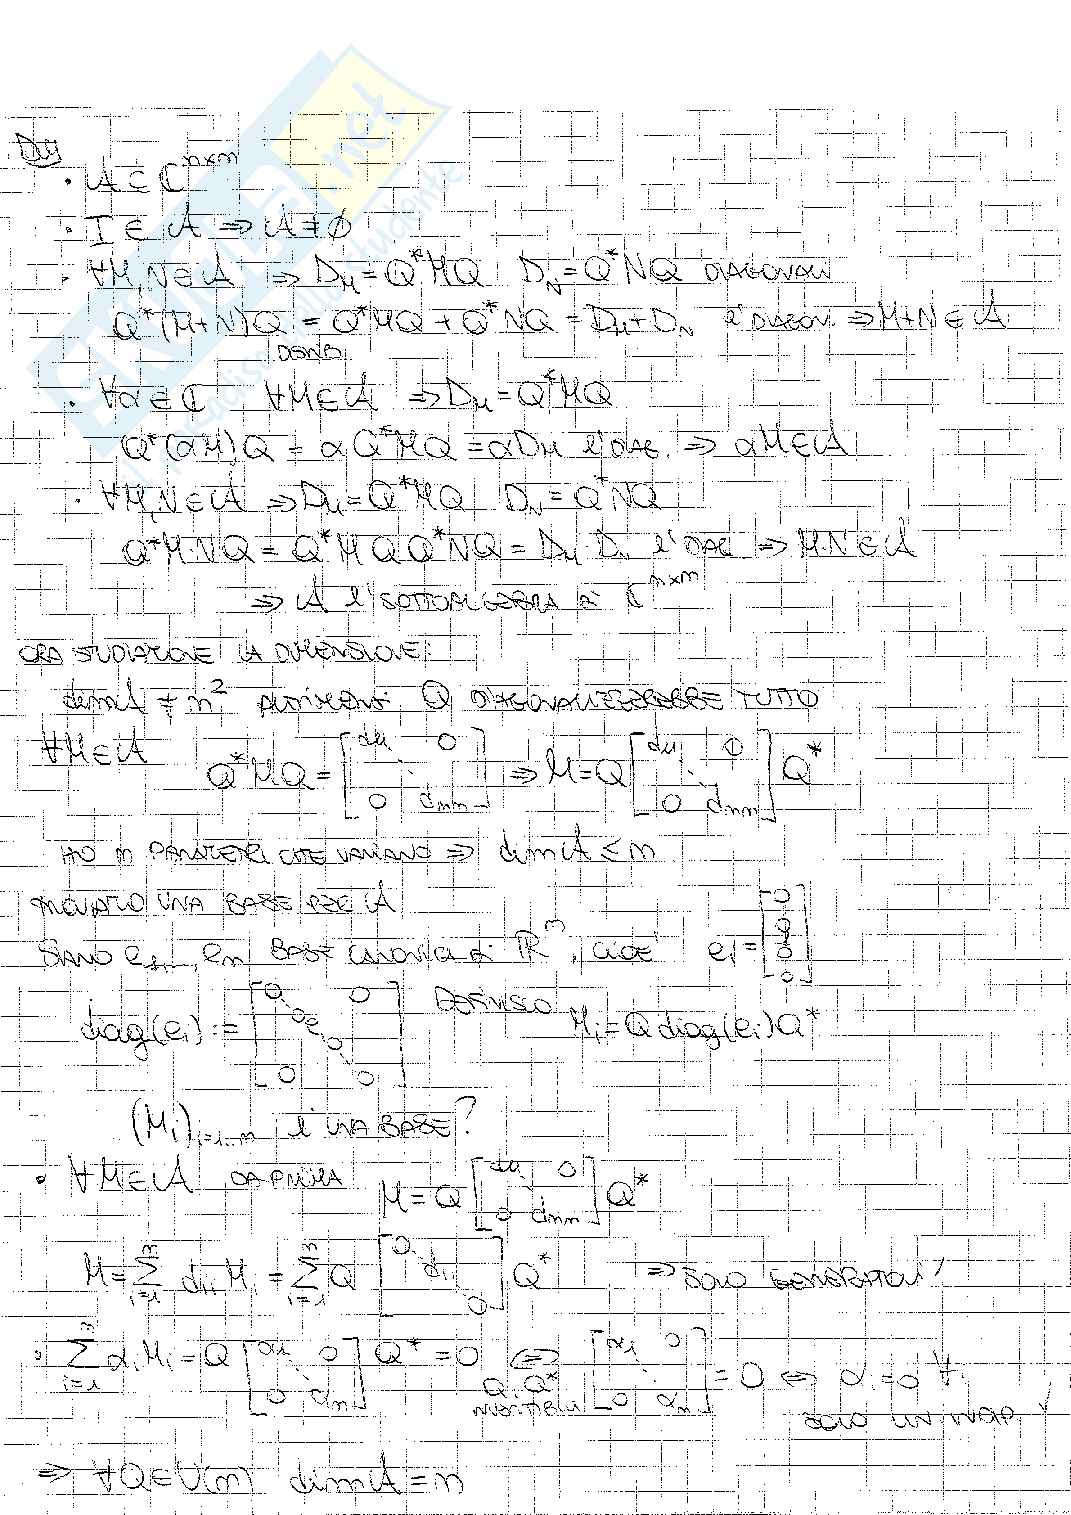 Dim
• A ⊆ ℂ^{n×n}
• I ∈ A ⇒ A ≠ ∅
• ∀M,N ∈ A ⇒ D_M = Q*MQ D_N = Q*NQ DIAGONALI
Q*(M+N)Q = Q*MQ + Q*NQ = D_M + D_N è DIAGON. ⇒ M+N ∈ A
• ∀α ∈ ℂ ∀M ∈ A ⇒ D_M = Q*MQ
Q*(αM)Q = αQ*MQ = αD_M è DIAG. ⇒ αM ∈ A
• ∀M,N ∈ A ⇒ D_M = Q*MQ D_N = Q*NQ
Q*M·NQ = Q*MQQ*NQ = D_M D_N è DIAG ⇒ M·N ∈ A
⇒ A è SOTTOALGEBRA di ℂ^{n×n}
ORA STUDIAMONE LA DIMENSIONE:
dim A ≠ n² ALTRIMENTI Q DIAGONALIZZEREBBE TUTTO
∀M ∈ A Q*MQ = [d₁₁ 0 ⋱ 0 d_{nn}] ⇒ M = Q [d₁₁ 0 ⋱ 0 d_{nn}] Q*
HO n PARAMETRI CHE VARIANO ⇒ dim A ≤ n
TROVIAMO UNA BASE PER A
SIANO e₁,…,e_n BASE CANONICA di ℝⁿ, CIOÈ e_i = [0 0 0 0]
diag(e_i) := [0 0 e_i 0 0 0] DEFINISCO M_i = Q diag(e_i) Q*
(M_i)_{i=1..n} è UNA BASE?
• ∀M ∈ A DA PRIMA M = Q [d₁₁ 0 ⋱ 0 d_{nn}] Q*
M = ∑_{i=1}^{n} d_{ii} M_i = ∑_{i=1}^{n} Q [0 d_i 0] Q* ⇒ SONO GENERATORI!
• ∑_{i=1}^{n} α_i M_i = Q [α₁ 0 ⋱ 0 α_n] Q* = 0 ⇔ [α₁ 0 ⋱ 0 α_n] = 0 ⇔ α_i = 0 ∀i
Q, Q* INVERTIBILI
SONO LIN INDIP!
⇒ ∀Q ∈ U(n) dim A = n